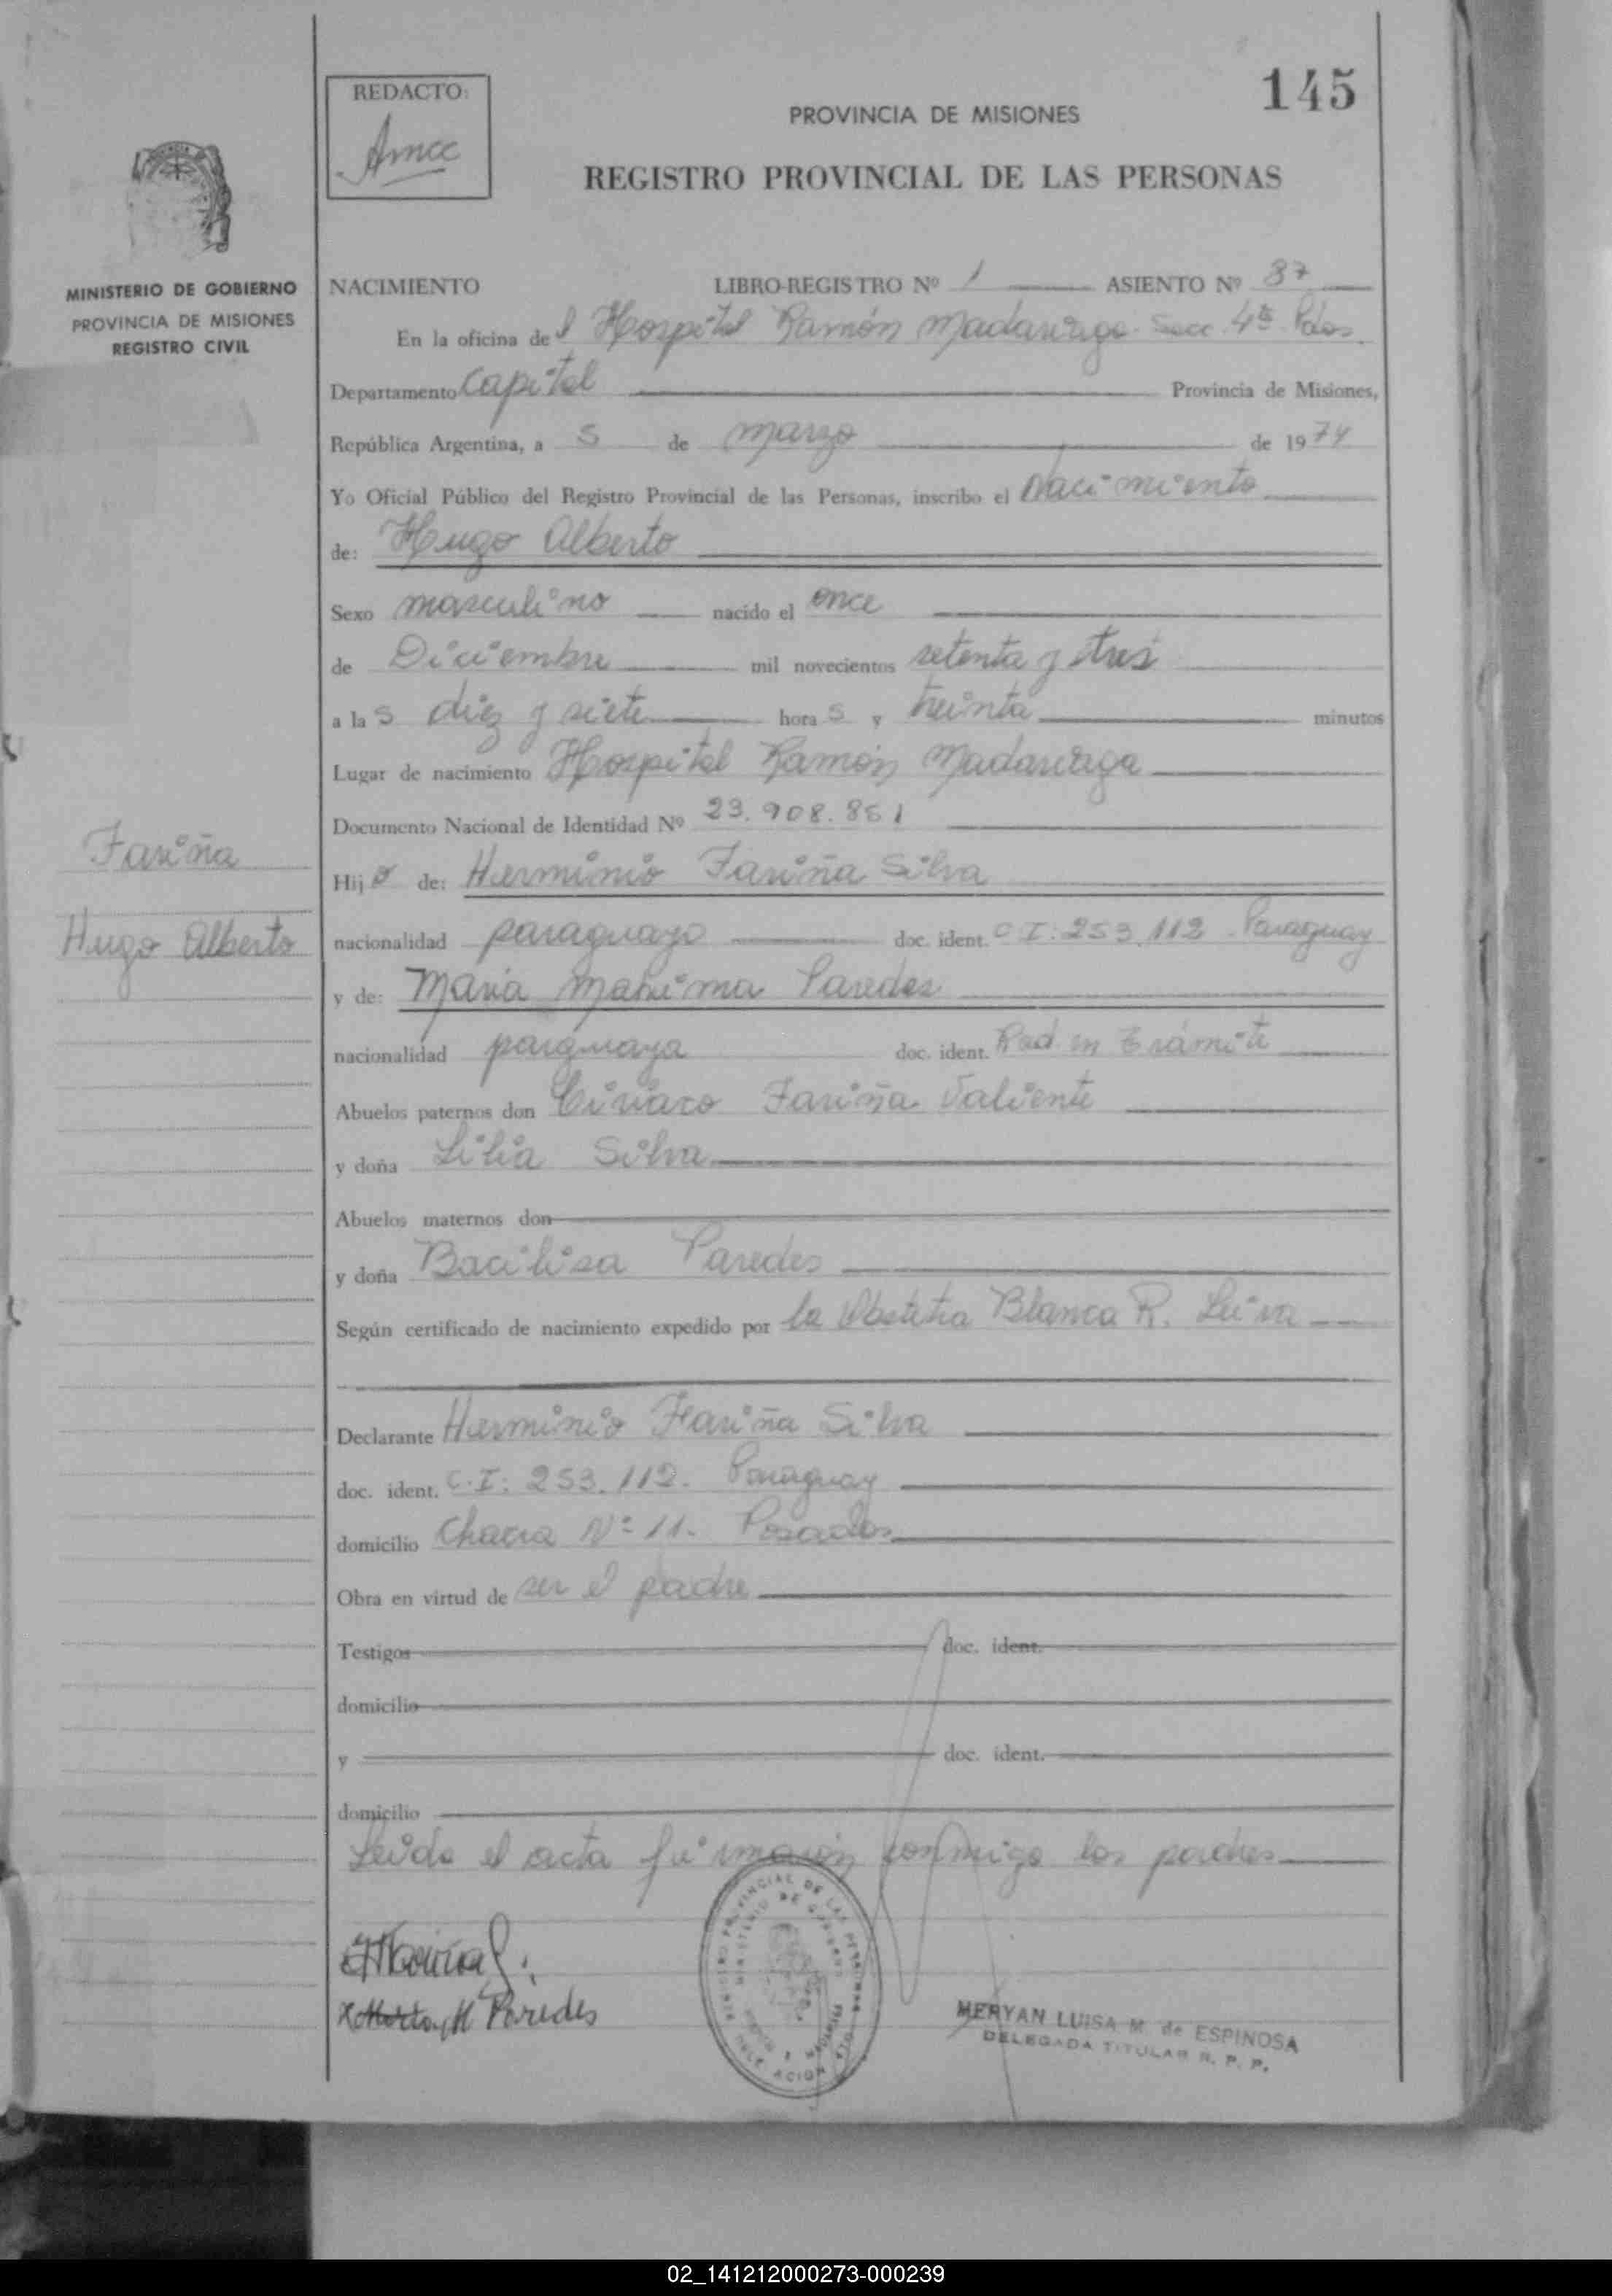 145
REDACTO:
Amcc
PROVINCIA DE MISIONES
REGISTRO PROVINCIAL DE LAS PERSONAS
MINISTERIO DE GOBIERNO
PROVINCIA DE MISIONES
REGISTRO CIVIL
NACIMIENTO LIBRO-REGISTRO Nº 1 ASIENTO Nº 87
En la oficina del Hospital Ramón Madariaga Secc. 4ta Pdas.
Departamento Capital Provincia de Misiones,
República Argentina, a 5 de marzo de 1974
Yo Oficial Público del Registro Provincial de las Personas, inscribo el nacimiento
de: Hugo Alberto
Sexo masculino nacido el once
de Diciembre mil novecientos setenta y tres
a las diez y siete horas y treinta minutos
Lugar de nacimiento Hospital Ramón Madariaga
Documento Nacional de Identidad Nº 23.908.861
Fariña
Hugo Alberto
Hijo de: Herminio Fariña Silva
nacionalidad paraguayo doc. ident. C I: 253.112 Paraguay
y de: Maria Paredes
nacionalidad parguaya doc. ident. Rad. en trámite
Abuelos paternos don Ciriaco Fariña Valiente
y doña Lilia Silva
Abuelos maternos don
y doña Bacilisa Paredes
Según certificado de nacimiento expedido por la Obstetra Blanca R. Leiva
Declarante Herminio Fariña Silva
doc. ident. C.I: 253.112. Paraguay
domicilio Chacra Nº 11. Posadas
Obra en virtud de ser el padre
Testigos doc. ident.
domicilio
y doc. ident.
domicilio
Leida el acta firmaron conmigo los padres
HFariña S.
M Paredes
REGISTRO PROVINCIAL DE LAS PERSONAS
MINISTERIO DE GOBIERNO
DELEGACION
MERYAN LUISA M. de ESPINOSA
DELEGADA TITULAR R. P. P.
02_141212000273-000239